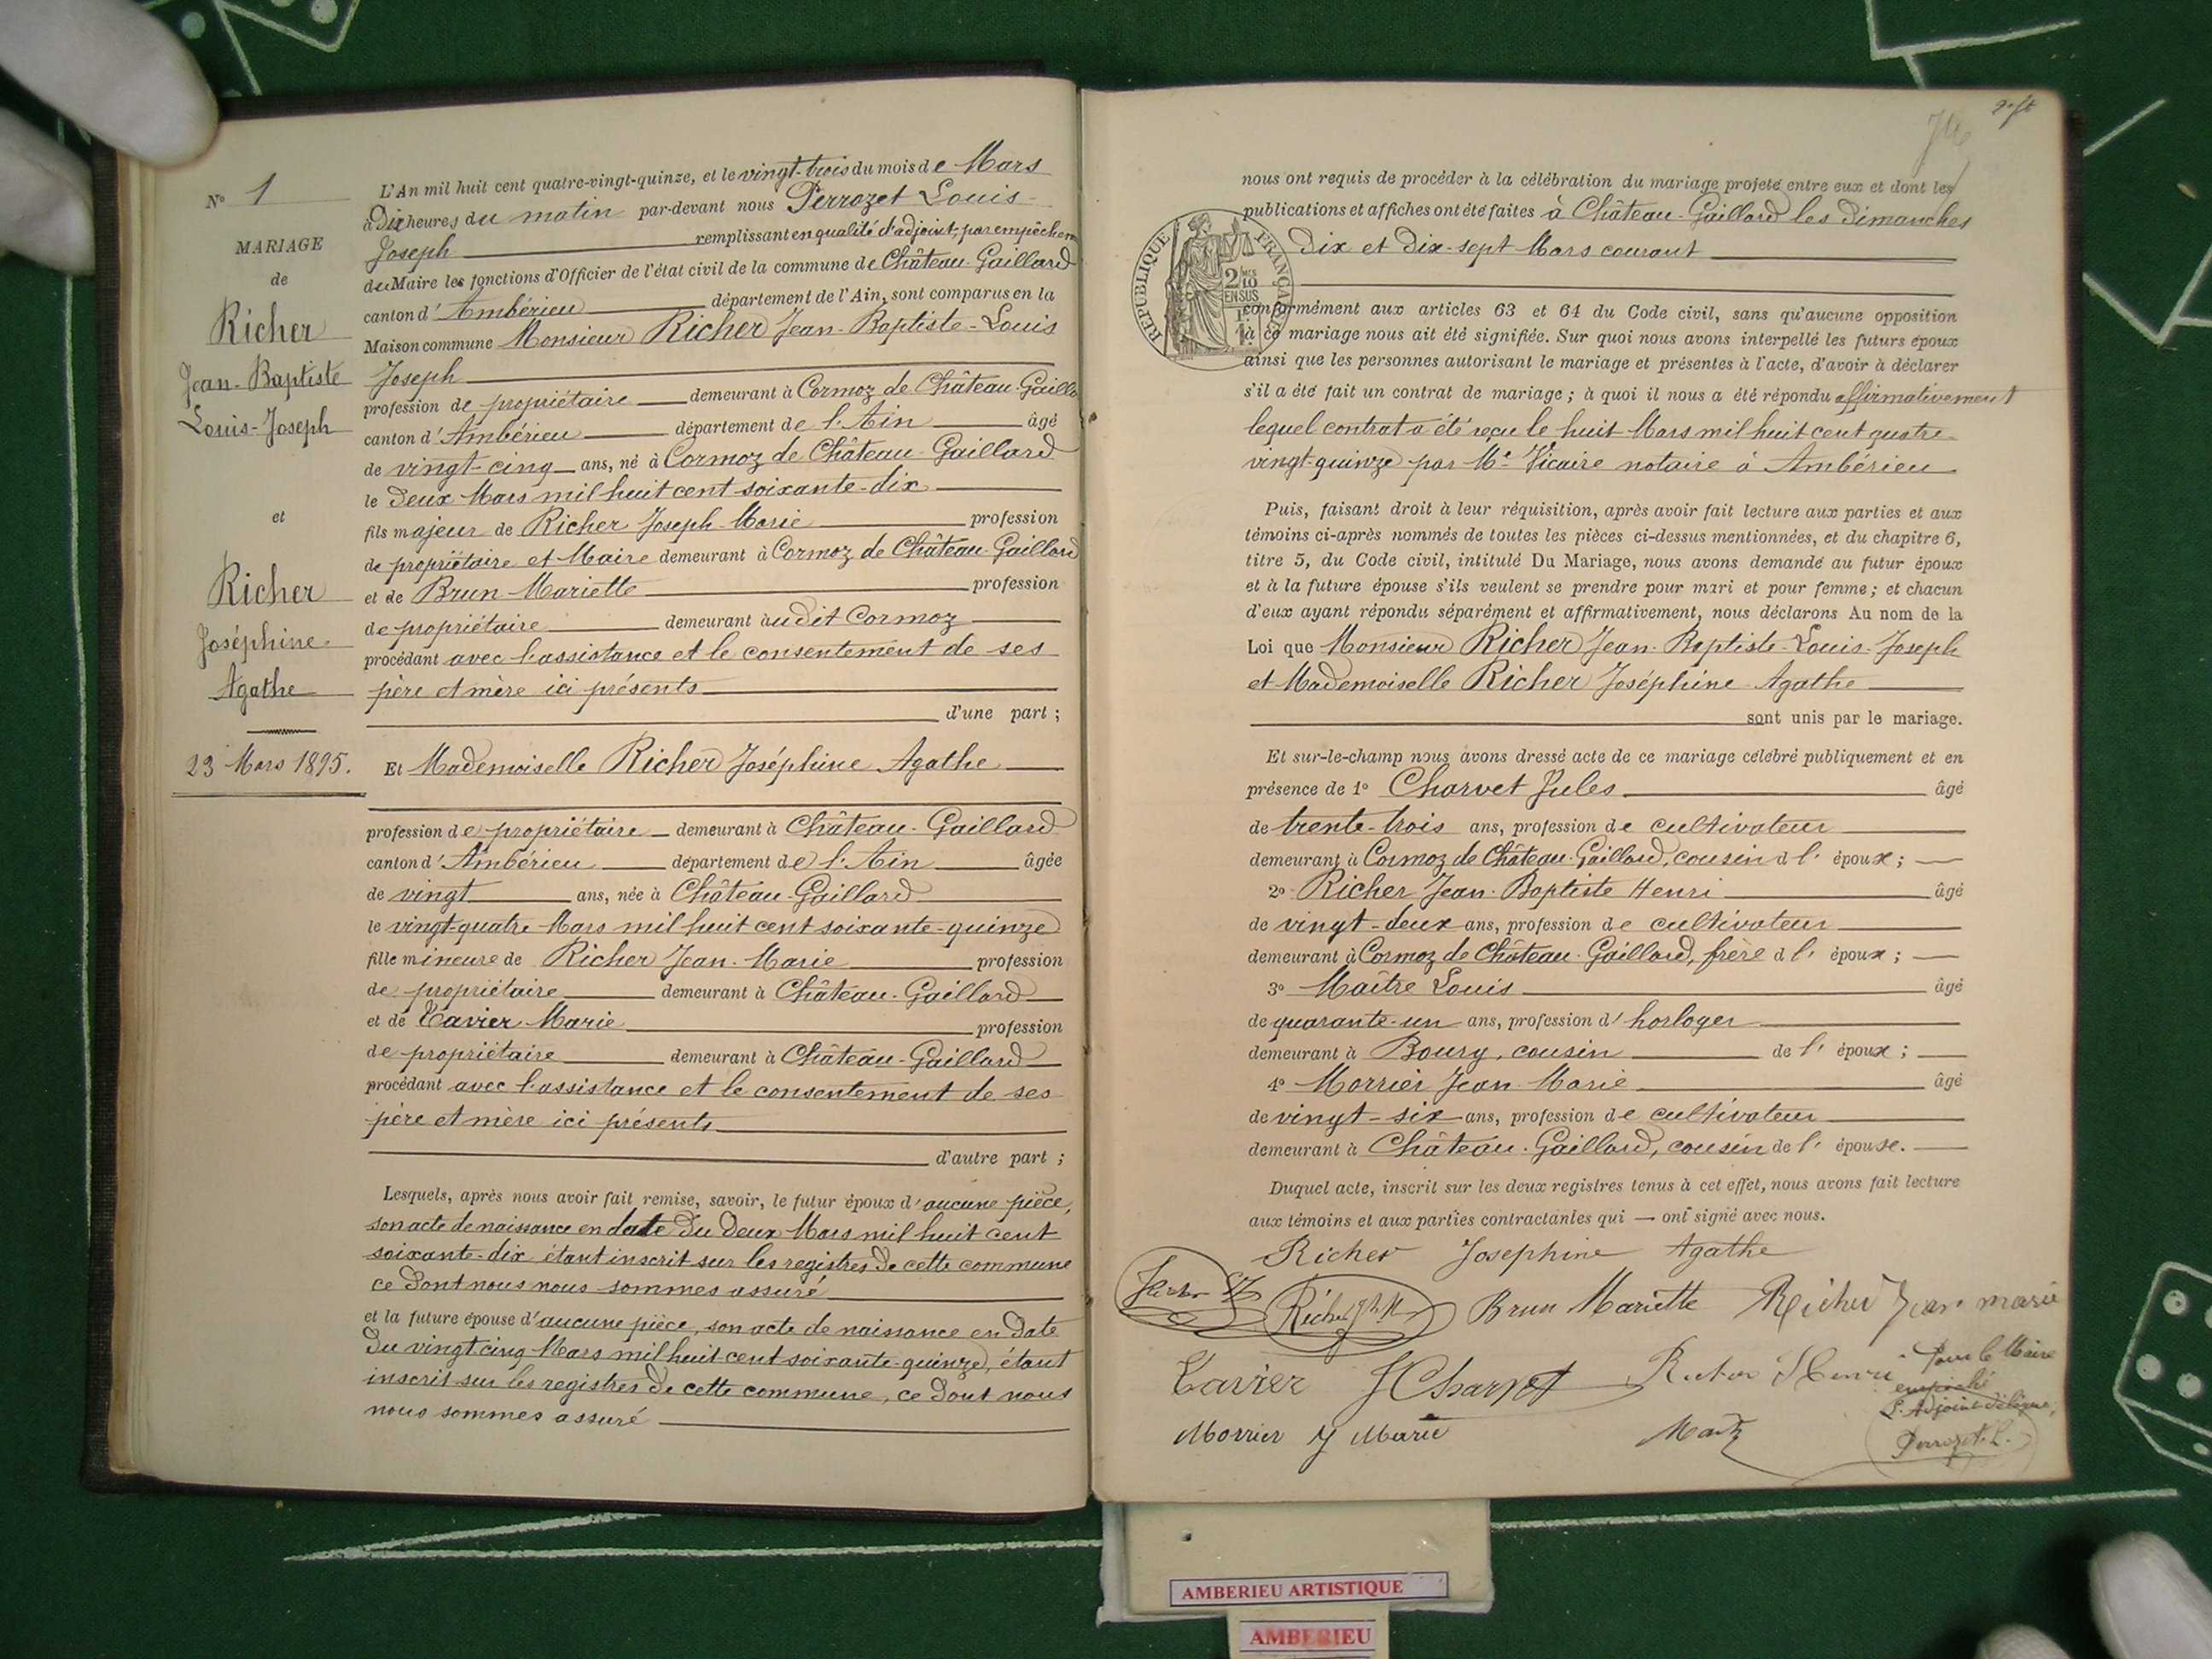 N° 1
MARIAGE
de
Richer
Jean-Baptiste
Louis-Joseph
et
Richer
Joséphine
Agathe
23 Mars 1895.
L'An mil huit cent quatre-vingt-quinze, et le vingt-trois du mois de Mars
à Dix heures du matin par-devant nous Perrozet Louis-
Joseph remplissant en qualité d'adjoint, par empêchem
du Maire les fonctions d'Officier de l'état civil de la commune de Château-Gaillard
canton d'Ambérieu département de l'Ain, sont comparus en la
Maison commune Monsieur Richer Jean-Baptiste-Louis
Joseph
profession de propriétaire demeurant à Cormoz de Château-Gailla
canton d'Ambérieu département de l'Ain âgé
de vingt-cinq ans, né à Cormoz de Château-Gaillard
le Deux Mars mil huit cent soixante-dix
fils majeur de Richer Joseph-Marie profession
de propriétaire et Maire demeurant à Cormoz de Château-Gaillard
et de Brun Mariette profession
de propriétaire demeurant audit Cormoz
procédant avec l'assistance et le consentement de ses
père et mère ici présents
d'une part ;
Et Mademoiselle Richer Joséphine Agathe
profession de propriétaire demeurant à Château-Gaillard
canton d'Ambérieu département de l'Ain âgée
de vingt ans, née à Château-Gaillard
le vingt-quatre Mars mil huit cent soixante-quinze
fille mineure de Richer Jean-Marie profession
de propriétaire demeurant à Château-Gaillard
et de Tavier Marie profession
de propriétaire demeurant à Château-Gaillard
procédant avec l'assistance et le consentement de ses
père et mère ici présents
d'autre part ;
Lesquels, après nous avoir fait remise, savoir, le futur époux d'aucune pièce,
son acte de naissance en date du Deux Mars mil huit cent
soixante-dix étant inscrit sur les registres de cette commune
ce dont nous nous sommes assuré
et la future épouse d'aucune pièce, son acte de naissance en date
du vingt cinq Mars mil huit cent soixante-quinze, étant
inscrit sur les registres de cette commune, ce dont nous
nous sommes assuré
nous ont requis de procéder à la célébration du mariage projeté entre eux et dont les
publications et affiches ont été faites à Château-Gaillard les dimanches
dix et dix-sept Mars courant
RÉPUBLIQUE FRANÇAISE
2/10
EN SUS
conformément aux articles 63 et 64 du Code civil, sans qu'aucune opposition
à ce mariage nous ait été signifiée. Sur quoi nous avons interpellé les futurs époux
ainsi que les personnes autorisant le mariage et présentes à l'acte, d'avoir à déclarer
s'il a été fait un contrat de mariage ; à quoi il nous a été répondu affirmativement
lequel contrat a été reçu le huit Mars mil huit cent quatre-
vingt-quinze par Me Vicaire notaire à Ambérieu
Puis, faisant droit à leur réquisition, après avoir fait lecture aux parties et aux
témoins ci-après nommés de toutes les pièces ci-dessus mentionnées, et du chapitre 6,
titre 5, du Code civil, intitulé Du Mariage, nous avons demandé au futur époux
et à la future épouse s'ils veulent se prendre pour mari et pour femme ; et chacun
d'eux ayant répondu séparément et affirmativement, nous déclarons Au nom de la
Loi que Monsieur Richer Jean-Baptiste-Louis-Joseph
et Mademoiselle Richer Joséphine-Agathe
sont unis par le mariage.
Et sur-le-champ nous avons dressé acte de ce mariage célébré publiquement et en
présence de 1° Charvet Jules âgé
de trente-trois ans, profession de cultivateur
demeurant à Cormoz de Château-Gaillard, cousin d l' époux ;
2° Richer Jean-Baptiste Henri âgé
de vingt-deux ans, profession de cultivateur
demeurant à Cormoz de Château-Gaillard, frère d l' époux ;
3° Maître Louis âgé
de quarante-un ans, profession d'horloger
demeurant à Bourg, cousin de l' époux ;
4° Morrier Jean-Marie âgé
de vingt-six ans, profession de cultivateur
demeurant à Château-Gaillard, cousin de l' épouse.
Duquel acte, inscrit sur les deux registres tenus à cet effet, nous avons fait lecture
aux témoins et aux parties contractantes qui — ont signé avec nous.
Richer Josephine Agathe
Brun Mariette Richer Jean marie
Tavier J Charvet Henri Pour le Maire
empêché
L'Adjoint délégué,
Morrier J Marie Perrozet L.
AMBERIEU ARTISTIQUE
AMBERIEU